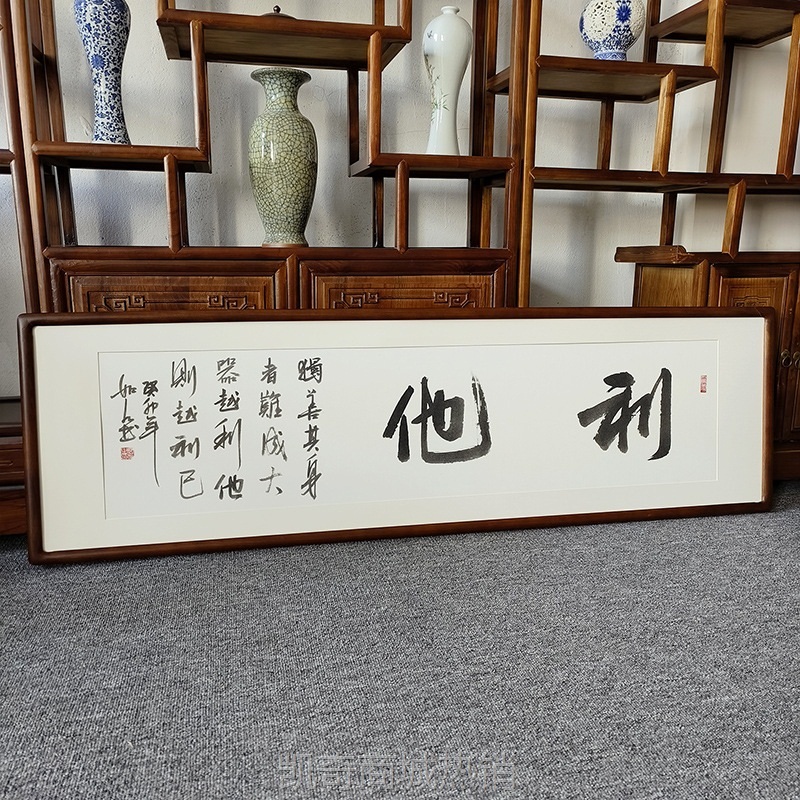 利他
獨善其身
者難成大
器越利他
則越利己
癸卯年